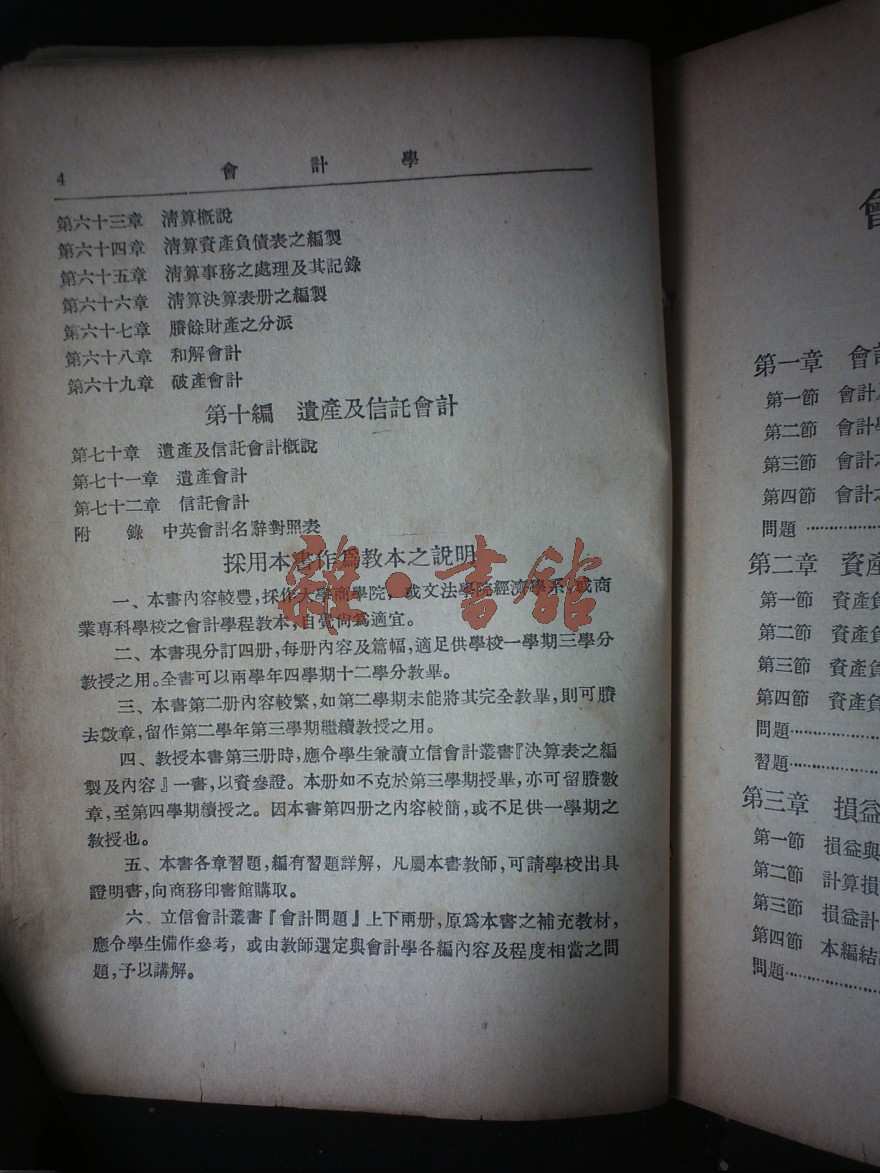 4 會計學
第六十三章 淸算概說
第六十四章 淸算資產負債表之編製
第六十五章 淸算事務之處理及其記錄
第六十六章 淸算決算表册之編製
第六十七章 賸餘財產之分派
第六十八章 和解會計
第六十九章 破產會計
第十編 遺產及信託會計
第七十章 遺產及信託會計概說
第七十一章 遺產會計
第七十二章 信託會計
附錄 中英會計名辭對照表
採用本書作爲教本之說明
一、本書內容較豐，採作大學商學院，或文法學院經濟學系，或商
業專科學校之會計學程教本，自覺尙爲適宜。
二、本書現分訂四册，每册內容及篇幅，適足供學校一學期三學分
教授之用。全書可以兩學年四學期十二學分教畢。
三、本書第二册內容較繁，如第二學期未能將其完全教畢，則可賸
去數章，留作第二學年第三學期繼續教授之用。
四、教授本書第三册時，應令學生兼讀立信會計叢書『決算表之編
製及內容』一書，以資參證。本册如不克於第三學期授畢，亦可留賸數
章，至第四學期續授之。因本書第四册之內容較簡，或不足供一學期之
教授也。
五、本書各章習題，編有習題詳解，凡屬本書教師，可請學校出具
證明書，向商務印書館購取。
六、立信會計叢書『會計問題』上下兩册，原爲本書之補充教材，
應令學生備作參考，或由教師選定與會計學各編內容及程度相當之問
題，予以講解。
雜·書館
會
第一章 會計
第一節 會計
第二節 會計
第三節 會計之
第四節 會計之
問題
第二章 資產
第一節 資產負
第二節 資產負
第三節 資產負
第四節 資產負
問題
習題
第三章 損益
第一節 損益與
第二節 計算損
第三節 損益計
第四節 本編結
問題